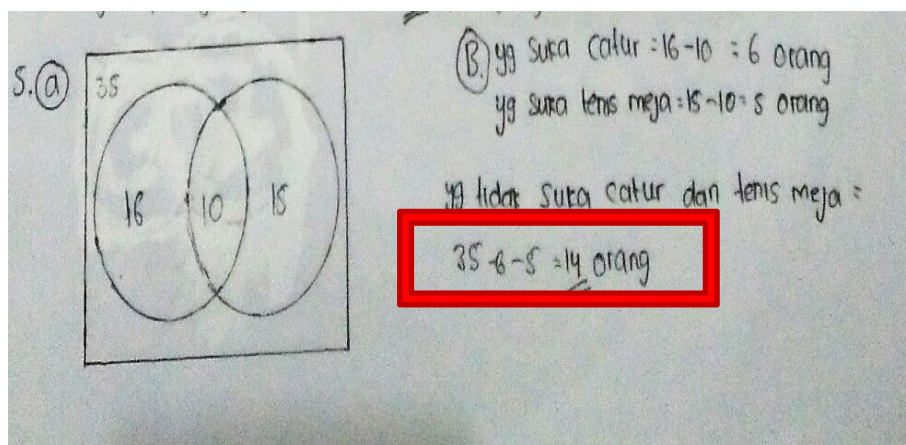 5. (a)
35
16 10 15
(B.) yg suka catur = 16-10 = 6 orang
yg suka tenis meja = 15-10 = 5 orang
yg tidak suka catur dan tenis meja =
35-6-5 = 14 orang